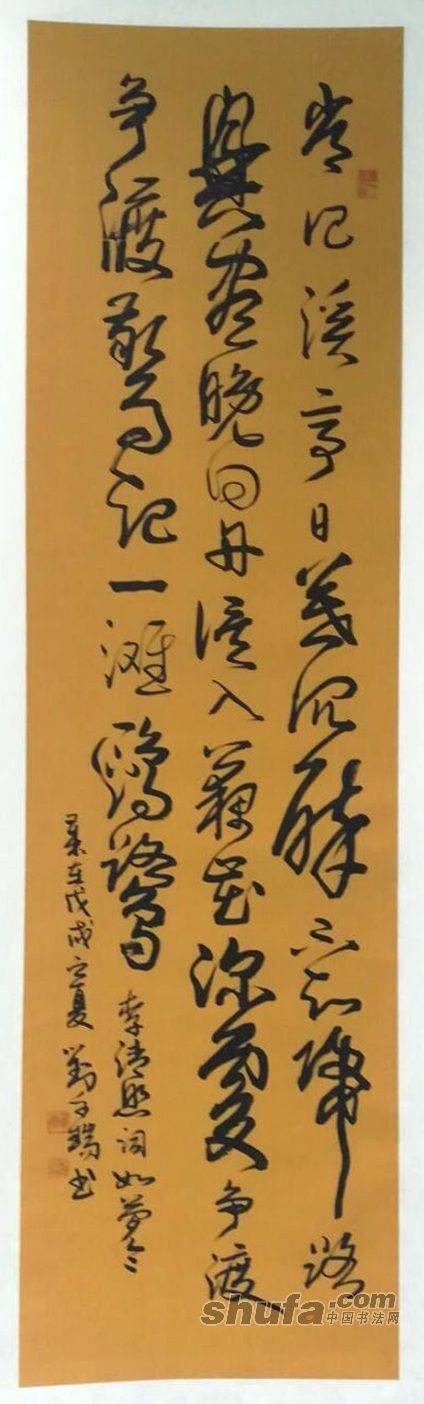 常记溪亭日暮沉醉不知歸路
興盡晚回舟误入藕花深處争渡
争渡驚起一滩鷗鷺 李清照词如夢令
歲在戊戌之夏 劉书
shufa.com
中国书法网